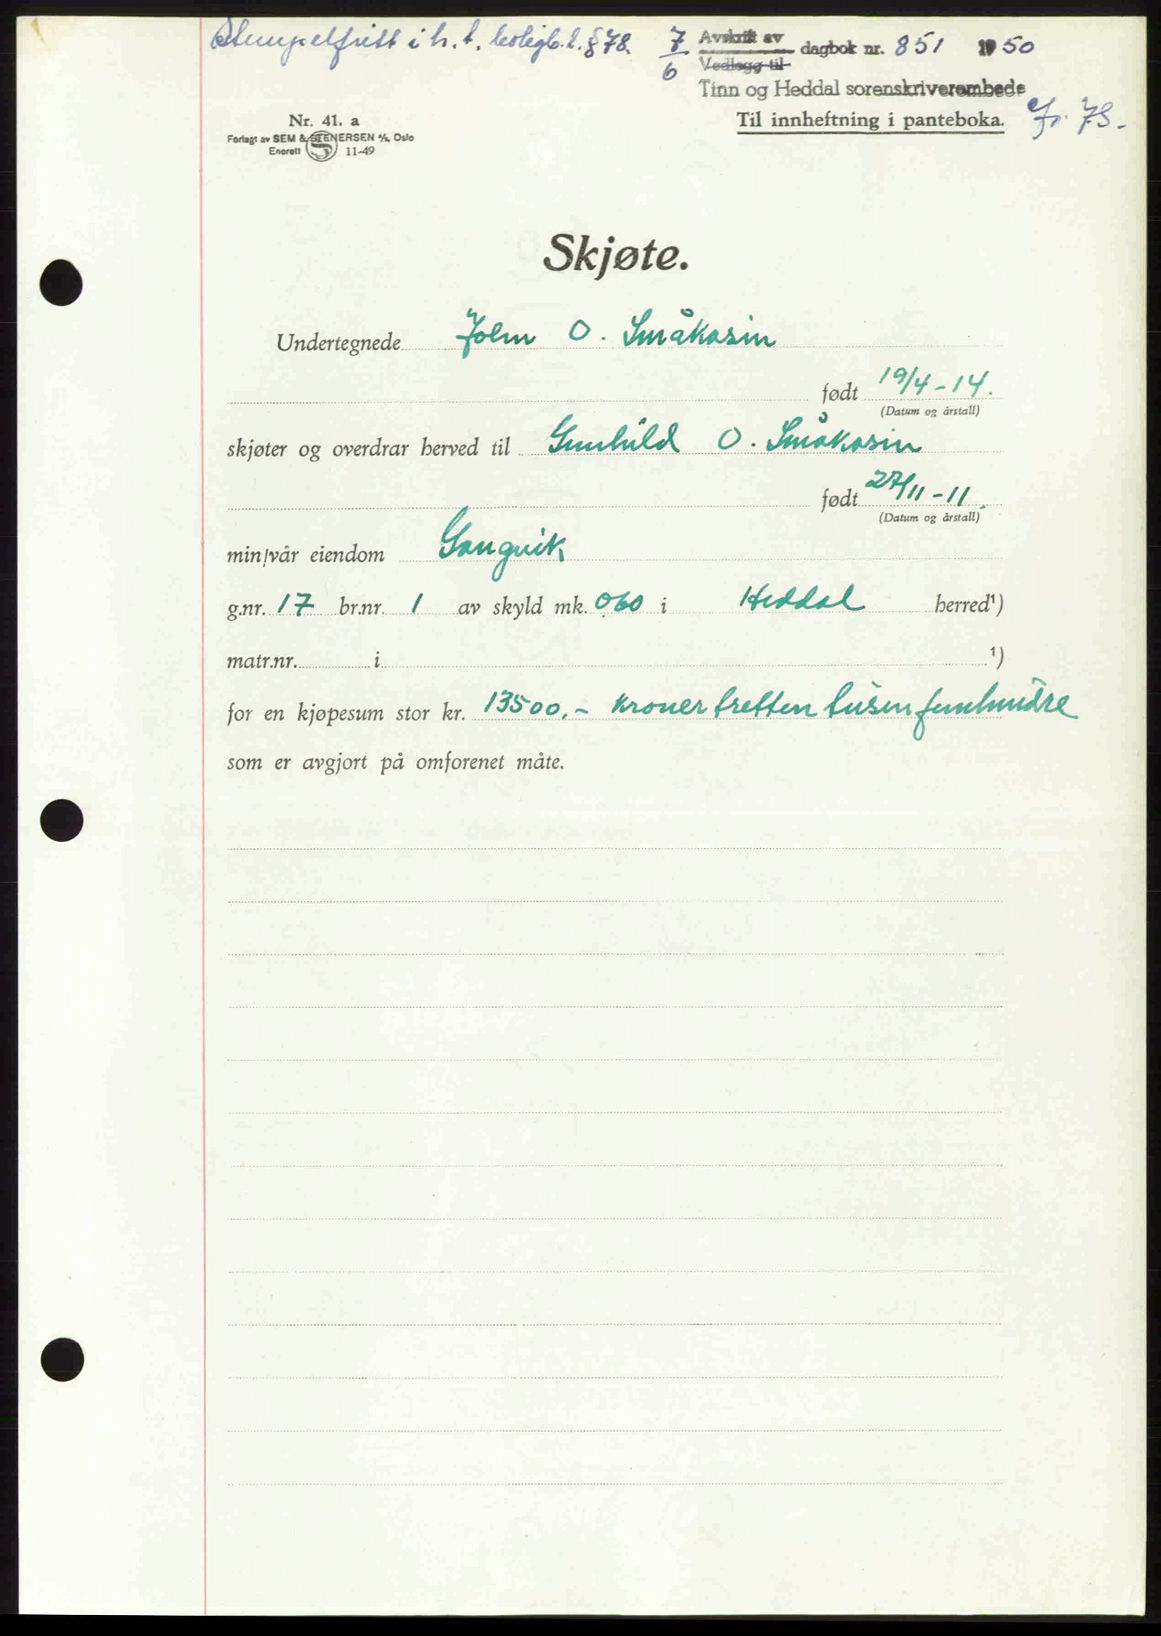 Stempelfritt i h. t. boligb. l. § 78.
7/6 Avskrift av
Vedlegg til
dagbok nr. 851 1950
Tinn og Heddal sorenskriverembede
Til innheftning i panteboka.
Nr. 41. a
Forlagt av SEM & STENERSEN A/S, Oslo
Enerett S 11-49
Skjøte.
Undertegnede John O. Småkasin
født 19/4-14.
(Datum og årstall)
skjøter og overdrar herved til Gunhild O. Småkasin
født 27/11-11.
(Datum og årstall)
min/vår eiendom Sangvik
g.nr. 17 br.nr. 1 av skyld mk. 060 i Heddal herred¹)
matr.nr. i ¹)
for en kjøpesum stor kr. 13500.- kroner tretten tusen femhundre
som er avgjort på omforenet måte.